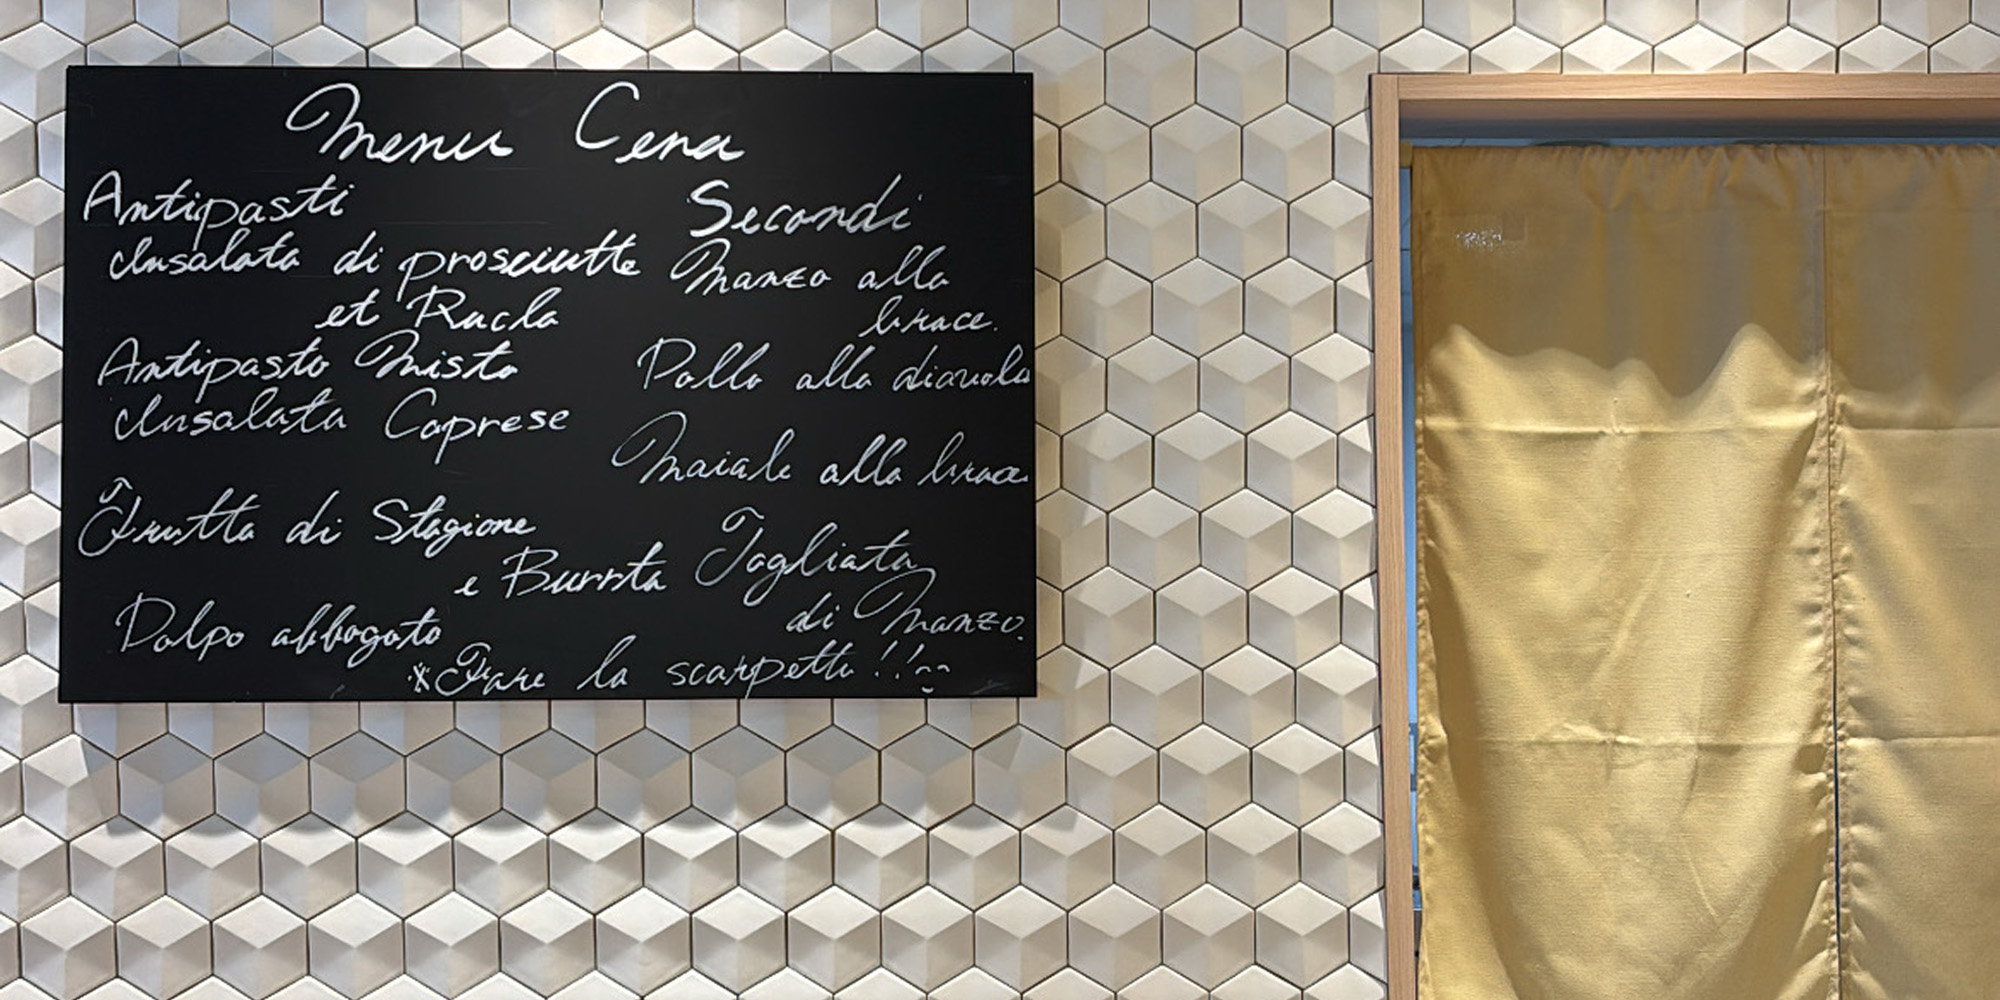 Menu Cena
Antipasti
Insalata di prosciutto
et Rucla
Antipasto Misto
Insalata Caprese
Frutta di Stagione
e Burrta
Polpo abbogato
Secondi
Manzo alla
brace.
Pollo alla diavola
Maiale alla brace
Tagliata
di Manzo.
*Fare la scarpetta!!